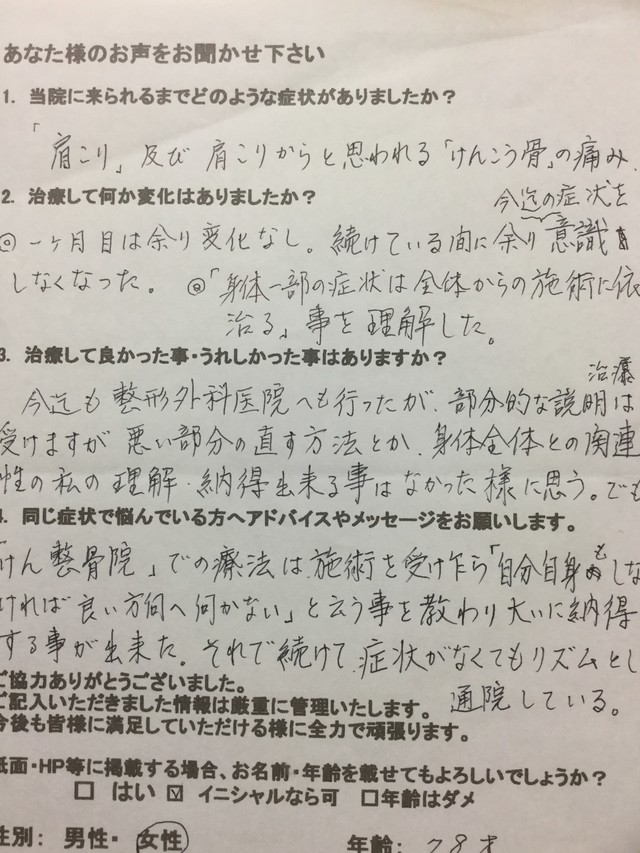 あなた様のお声をお聞かせ下さい
1. 当院に来られるまでどのような症状がありましたか？
「肩こり」及び 肩こりからと思われる「けんこう骨」の痛み.
2. 治療して何か変化はありましたか？
今迄の症状を
◎一ヶ月目は余り変化なし。続けている間に余り意識
しなくなった。 ◎「身体一部の症状は全体からの施術に依
治る」事を理解した。
3. 治療して良かった事・うれしかった事はありますか？
治療
今迄も 整形外科医院へも行ったが、部分的な説明は
受けますが 悪い部分の直す方法とか、身体全体との関連
性の私の理解・納得出来る事はなかった様に思う。でも
4. 同じ症状で悩んでいる方へアドバイスやメッセージをお願いします。
「けん整骨院」での療法は施術を受け乍ら「自分自身もしな
ければ良い方向へ向かない」と云う事を教わり大いに納得
する事が出来た。それで続けて、症状がなくてもリズムとし
ご協力ありがとうございました。
通院している。
ご記入いただきました情報は厳重に管理いたします。
今後も皆様に満足していただける様に全力で頑張ります。
紙面・HP等に掲載する場合、お名前・年齢を載せてもよろしいでしょうか？
□ はい ☑ イニシャルなら可 □年齢はダメ
性別： 男性・ 女性 年齢： 78才